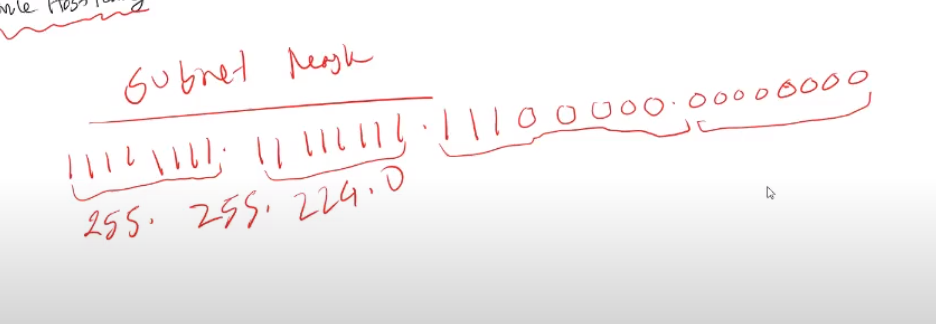 Subnet Mask
11111111. 11111111.11100000.00000000
255. 255. 224.0